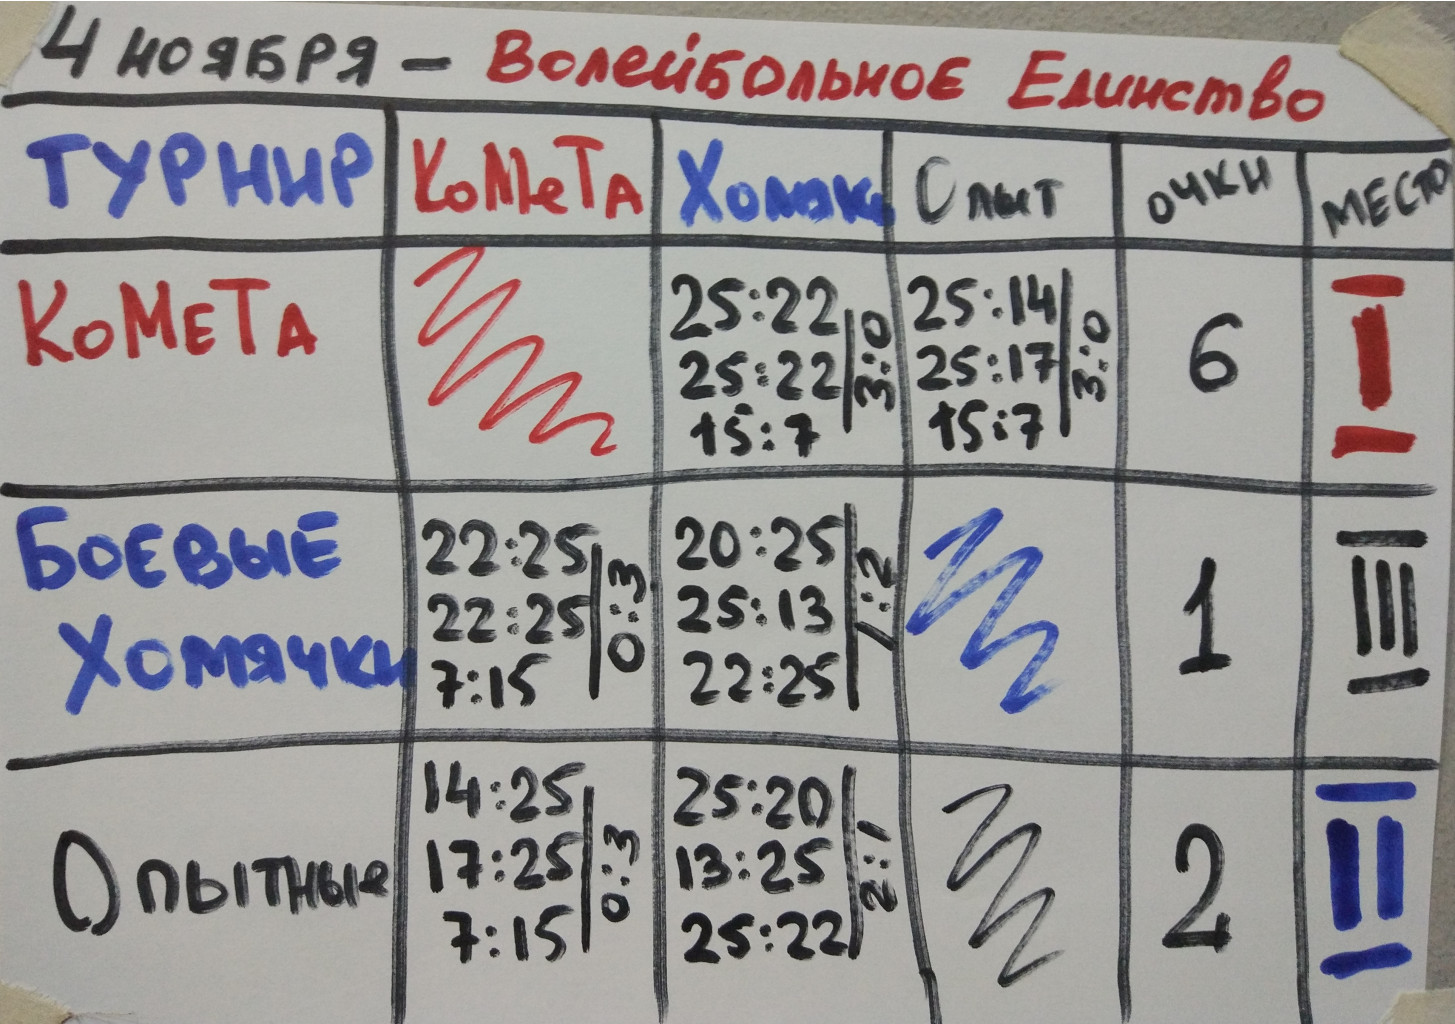 4 НОЯБРЯ – ВОЛЕЙБОЛЬНОЕ ЕДИНСТВО
ТУРНИР КОМЕТА ХОМЯКИ ОПЫТ ОЧКИ МЕСТО
КОМЕТА
25:22
25:22
15:7
3:0
25:14
25:17
15:7
3:0
6
I
БОЕВЫЕ
ХОМЯЧКИ
22:25
22:25
7:15
0:3
20:25
25:13
22:25
1:2
1
III
ОПЫТНЫЕ
14:25
17:25
7:15
0:3
25:20
13:25
25:22
2:1
2
II